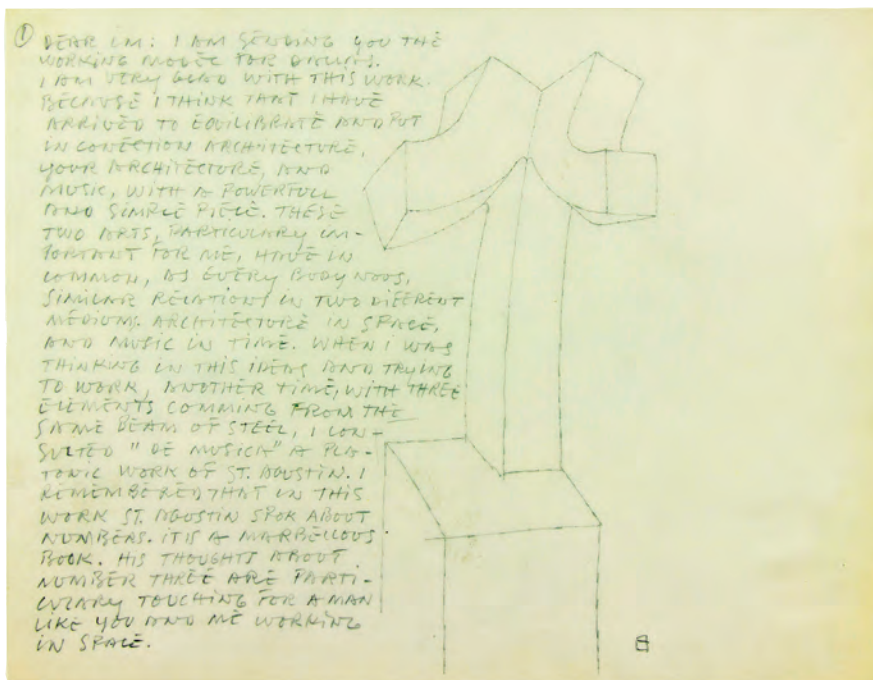 ① DEAR I.M: I AM SENDING YOU THE
WORKING MODEL FOR DALLAS.
I AM VERY GLAD WITH THIS WORK.
BECAUSE I THINK THAT I HAVE
ARRIVED TO EQUILIBRATE AND PUT
IN CONECTION ARCHITECTURE,
YOUR ARCHITECTURE, AND
MUSIC, WITH A POWERFULL
AND SIMPLE PIECE. THESE
TWO ARTS, PARTICULARY IM-
PORTANT FOR ME, HAVE IN
COMMON, AS EVERY BODY NOOS,
SIMILAR RELATIONS IN TWO DIFERENT
MEDIUMS. ARCHITECTURE IN SPACE,
AND MUSIC IN TIME. WHEN I WAS
THINKING IN THIS IDEAS AND TRYING
TO WORK, ANOTHER TIME, WITH THREE
ELEMENTS COMMING FROM THE
SAME BEAM OF STEEL, I CON-
SULTED "DE MUSICA" A PLA-
TONIC WORK OF ST. AGUSTIN. I
REMEMBERED THAT IN THIS
WORK ST. AGUSTIN SPOK ABOUT
NUMBERS. IT IS A MARBELLOUS
BOOK. HIS THOUGHTS ABOUT
NUMBER THREE ARE PARTI-
CULARY TOUCHING FOR A MAN
LIKE YOU AND ME WORKING
IN SPACE.